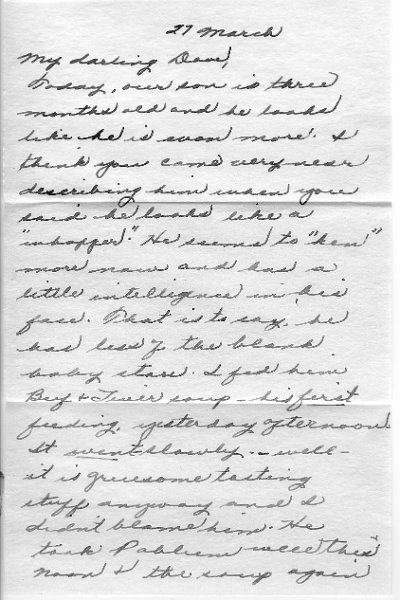 27 March
My darling Dave,
Today, our son is three
months old and he looks
like he is even more. I
think you came very near
describing him when you
said he looks like a
"whopper". He seems to "ken"
more now and has a
little intelligence in his
face. That is to say, he
has less of the blank
baby stare. I fed him
Beef & Liver soup - his first
feeding, yesterday afternoon
It went slowly. - well -
it is gruesome tasting
stuff anyway and I
didn't blame him. He
took Pablum well this
noon & the soup again